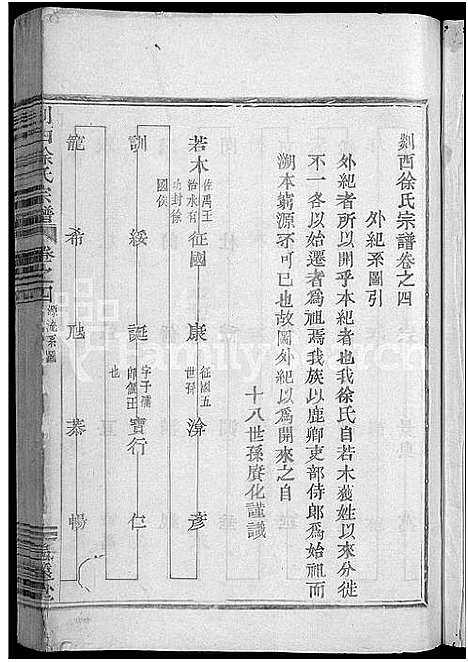 剡西徐氏宗譜卷之四
外紀系圖引
外紀者所以開乎本紀者也我徐氏自若木獲姓以來分徙
不一各以始遷者為祖焉我族以鹿卿吏部侍郎為始祖而
溯本窮源不可已也故圖外紀以為開來之自
十八世孫賡化謹識
若木 佐禹王治水有功封徐國侯 征國 康 征國五世孫 渰 彥
訓 綏 誕 字子孺即偃王也 寶行 仁
寵 希 尟 恭 暢
剡西徐氏宗譜 卷之四 源流系圖